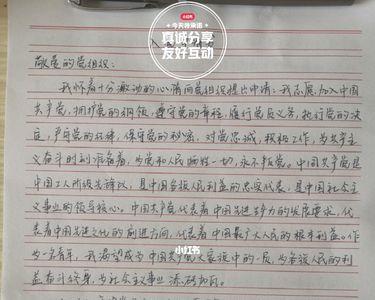 小红书
今天最来访
真诚分享
友好互动
敬爱的党组织:
我怀着十分激动的心情向党组织提出申请:我志愿加入中国
共产党,拥护党的纲领,遵守党的章程,履行党员义务,执行党的决
定,严守党的纪律,保守党的秘密,对党忠诚,积极工作,为共产主
义奋斗时刻准备着,为党和人民牺牲一切,永不叛党。中国共产党是
中国工人阶级先锋队,是中国各族人民利益的忠实代表,是中国社会主
义事业的领导核心。中国共产党代表着中国先进生产力的发展要求,代
表着中国先进文化的前进方向,代表着中国最广大人民的根本利益。作
为一名青年,我希望成为中国共产党大家庭中的一员,为各族人民的利
益奋斗终身,为社会主义事业添砖加瓦。
小红书